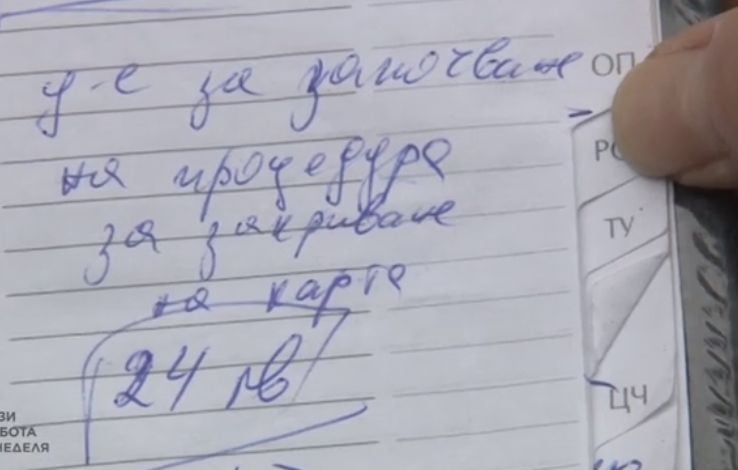 у-е за започване
на процедура
за закриване
на карта
24 лв
ОП
ТУ
ЦЧ
ЗИ
БОТА
НЕДЕЛЯ